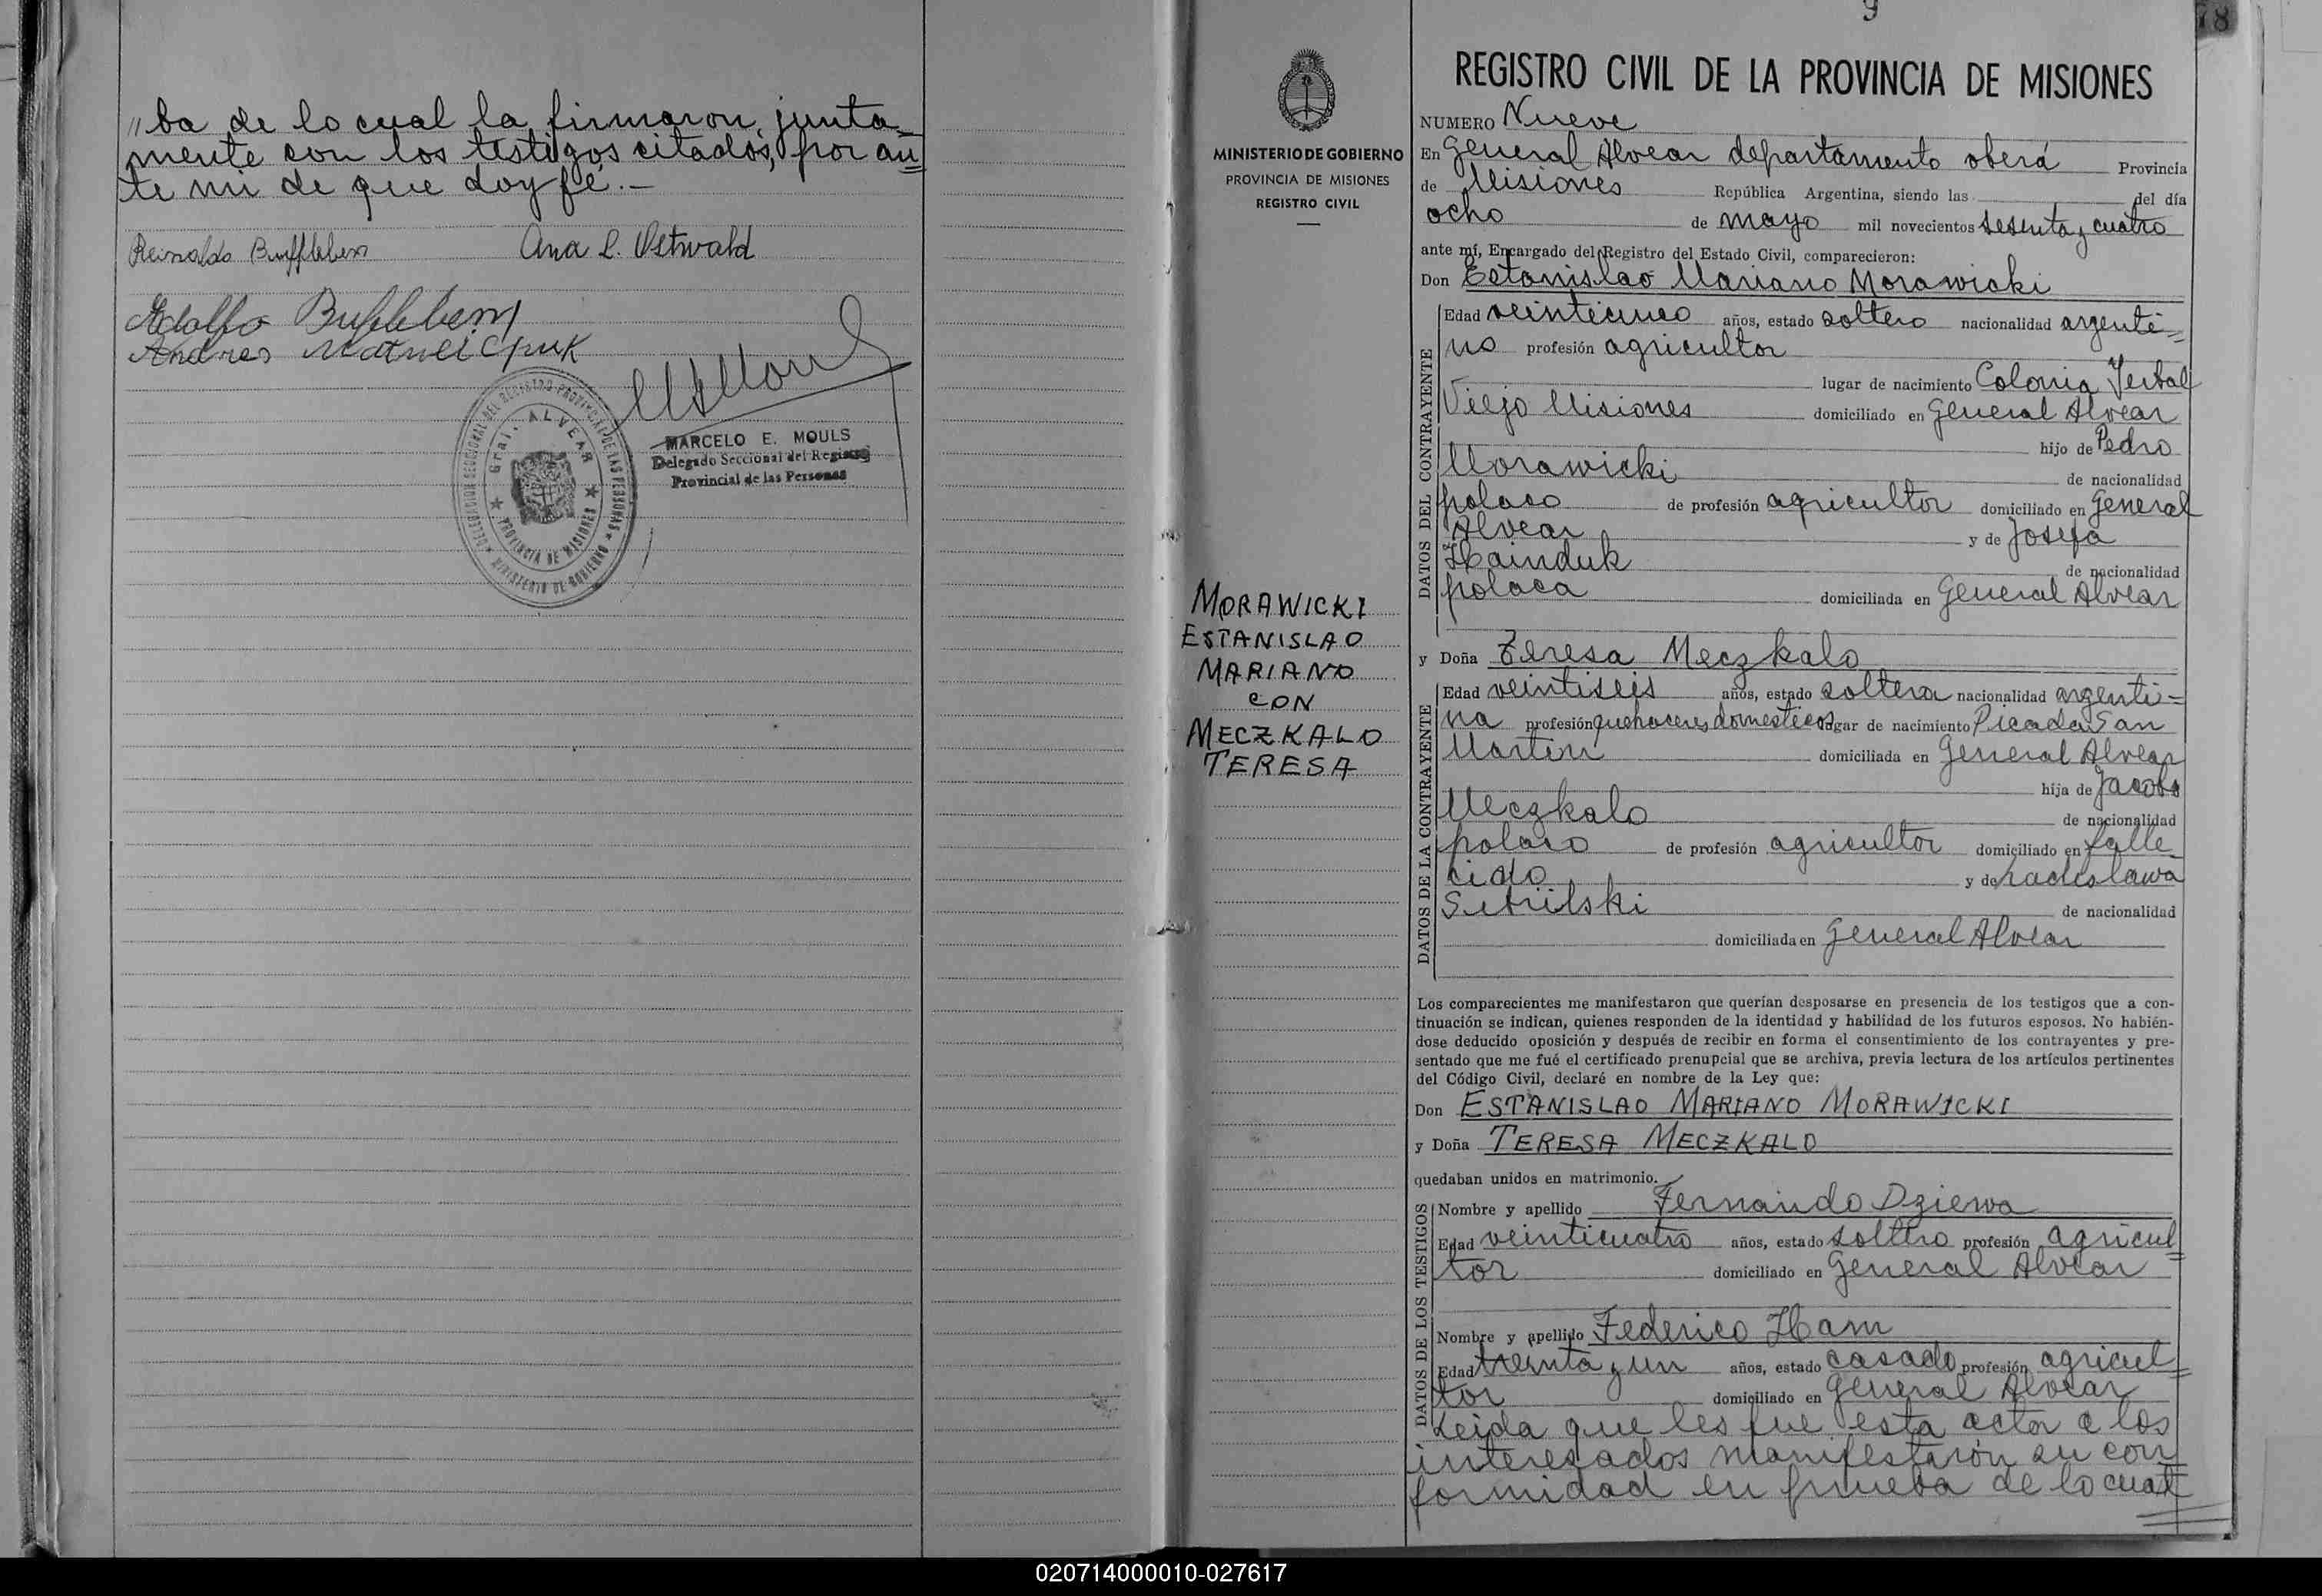 "ba de lo cual la firmaron junta-
mente con los testigos citados, por an
te mi de que doy fé.-
Reinaldo Ana L. Ostwald
Adolfo
Andres
MARCELO E. MOULS
Delegado Seccional del Registro
Provincial de las Personas
Gral. ALVEAR
PROVINCIA DE MISIONES
DELEGACION SECCIONAL DEL REGISTRO PROVINCIAL DE LAS PERSONAS
MINISTERIO DE GOBIERNO
MINISTERIO DE GOBIERNO
PROVINCIA DE MISIONES
REGISTRO CIVIL
MORAWICKI
ESTANISLAO
MARIANO
CON
MECZKALO
TERESA
9
78
REGISTRO CIVIL DE LA PROVINCIA DE MISIONES
NUMERO Nueve
En General Alvear departamento oberá Provincia
de Misiones República Argentina, siendo las del día
ocho de mayo mil novecientos sesenta y cuatro
ante mí, Encargado del Registro del Estado Civil, comparecieron:
Don Estanislao Mariano Morawicki
DATOS DEL CONTRAYENTE
Edad veinticinco años, estado soltero nacionalidad argenti=
no profesión agricultor
lugar de nacimiento Colonia Yerbal
Viejo Misiones domiciliado en General Alvear
hijo de Pedro
Morawicki de nacionalidad
polaco de profesión agricultor domiciliado en General
Alvear y de Josefa
Hainduk de nacionalidad
polaca domiciliada en General Alvear
y Doña Teresa Meczkalo
DATOS DE LA CONTRAYENTE
Edad veintiseis años, estado soltera nacionalidad argenti=
na profesión quehaceres domesticos lugar de nacimiento Picada San
Martin domiciliada en General Alvear
hija de Jacobo
Meczkalo de nacionalidad
polaco de profesión agricultor domiciliado en falle
cido y de Ladislawa
de nacionalidad
domiciliada en General Alvear
Los comparecientes me manifestaron que querían desposarse en presencia de los testigos que a con-
tinuación se indican, quienes responden de la identidad y habilidad de los futuros esposos. No habién-
dose deducido oposición y después de recibir en forma el consentimiento de los contrayentes y pre-
sentado que me fué el certificado prenupcial que se archiva, previa lectura de los artículos pertinentes
del Código Civil, declaré en nombre de la Ley que:
Don ESTANISLAO MARIANO MORAWICKI
y Doña TERESA MECZKALO
quedaban unidos en matrimonio.
DATOS DE LOS TESTIGOS
Nombre y apellido Fernando Dziewa
Edad veinticuatro años, estado soltero profesión agricul
tor domiciliado en General Alvear
Nombre y apellido Federico Ham
Edad treinta y un años, estado casado profesión agricul
tor domiciliado en General Alvear
Leida que les fue esta acta a los
interesados manifestarón su con
formidad en prueba de lo cual
020714000010-027617